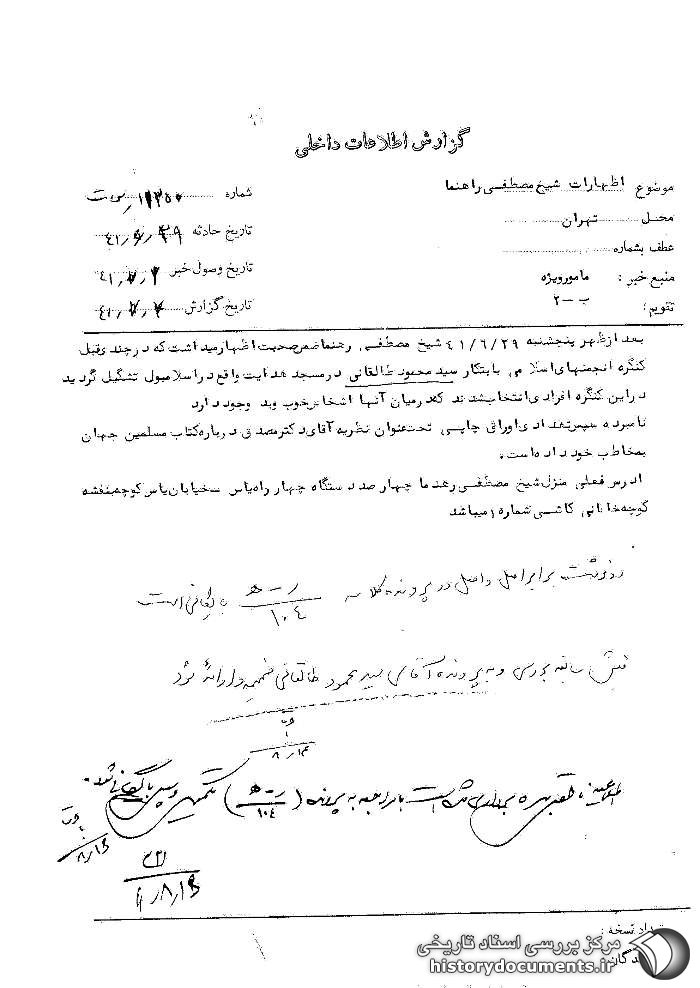 گزارش اطلاعات داخلی
موضوع اظهارات شیخ مصطفی راهنما
محل تهران
عطف بشماره
منبع خبر : مامورویژه
تقویم : ب-۲
شماره
تاریخ حادثه ۴۱٫۶٫۲۹
تاریخ وصول خبر ۴۱٫۷٫۲
تاریخ گزارش ۴۱٫۷٫۲
بعد ازظهر پنجشنبه ۴۱/۶/۲۹ شیخ مصطفی رهنما ضمن صحبت اظهار میداشت که در چندی قبل
کنگره انجمنهای اسلامی بابتکار سید محمود طالقانی در مسجد هدایت واقع در اسلامبول تشکیل گردید
در این کنگره افرادی انتخاب شدند که در میان آنها اشخاص خوب وبد وجود دارد
نامبرده سپس تعدادی اوراق چاپی تحت عنوان نظریه آقای دکتر مصدق درباره کتاب مسلمین جهان
بمخاطب خود داده است.
ادرس فعلی منزل شیخ مصطفی رهنما چهار صد دستگاه چهار راه یاس خیابان یاس کوچه بنفشه
کوچه خانانی کاشی شماره ۱ میباشد
رونوشت برابر اصل و اصل در پرونده کلاسه ر-ه/۱۰۴ بایگانی است
سابقه بررسی و به پرونده آقای سید محمود طالقانی ضمیمه و ارائه شود
۸٫۱۴
بهره برداری شده است با مراجعه به پرونده (ر-ه/۱۰۴) تکمیل و سپس بایگانی شود.
۸٫۱۶
۴۱٫۸٫۱۶
تعداد نسخه :
گیرندگان
مرکز بررسی اسناد تاریخی
historydocuments.ir